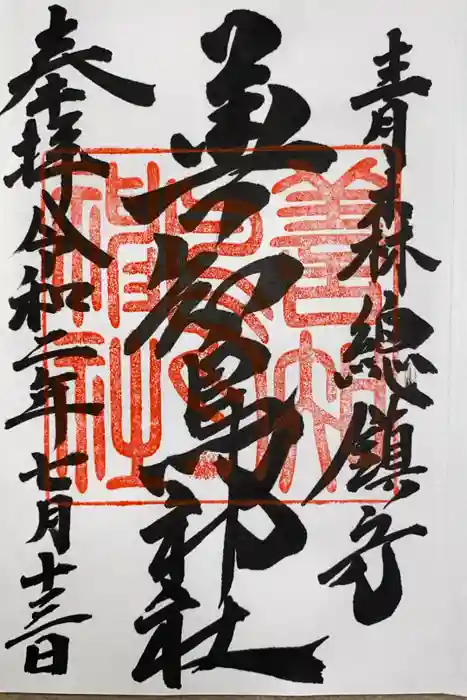 青森總鎮守
善知鳥神社
奉拝 令和二年七月十三日
善知鳥神社